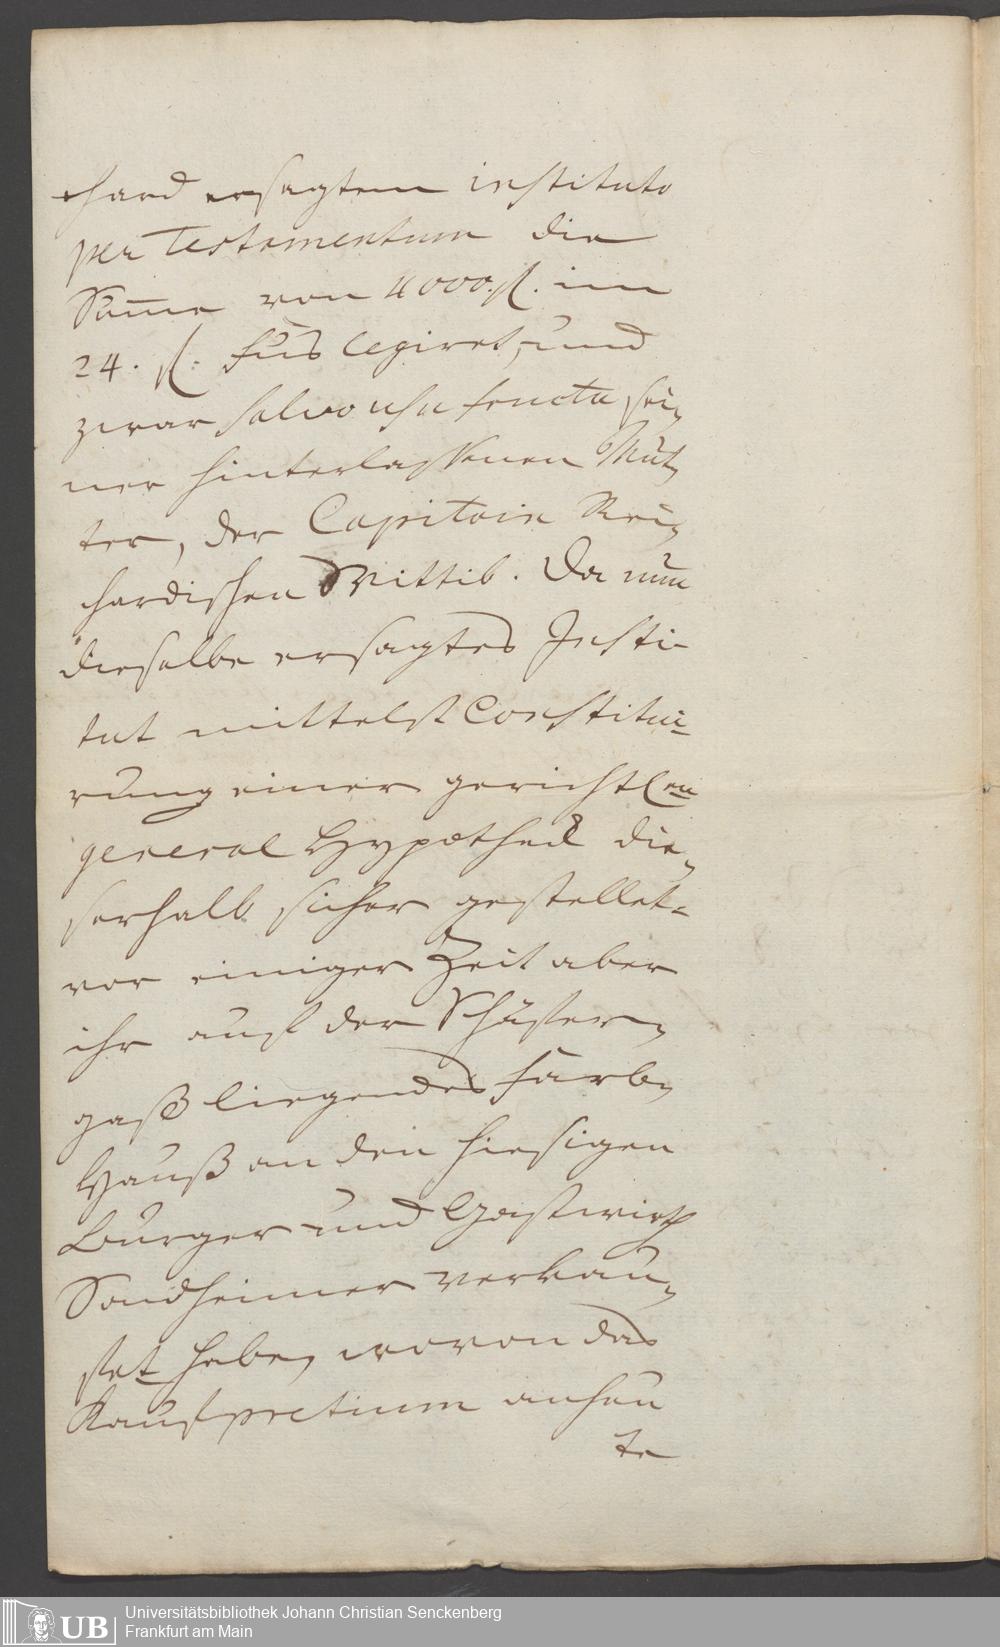 chard ersagtem instituto
per Testamentum die
Sum̅e von 4000. fl. im
24. fl. Fus legiret, und
zwar salvo usu fructu sei„
ner hinterlassenen Mut„
ter, der Capitain Rei„
chardischen Wittib. Da nun
dieselbe ersagtes Insti-
tut mittelst Constitui-
rung einer gerichtlen
general Hypotheck die„
serhalb sicher gestellet-
vor einiger Zeit aber
ihr auf der Schäfer„
gaß liegendes Farb„
Hauß an den hiesigen
Burger und Gastwirth
Sondheimer verkau„
fet habe, wovon das
Kaufpretium anheu
te
Universitätsbibliothek Johann Christian Senckenberg
Frankfurt am Main
UB